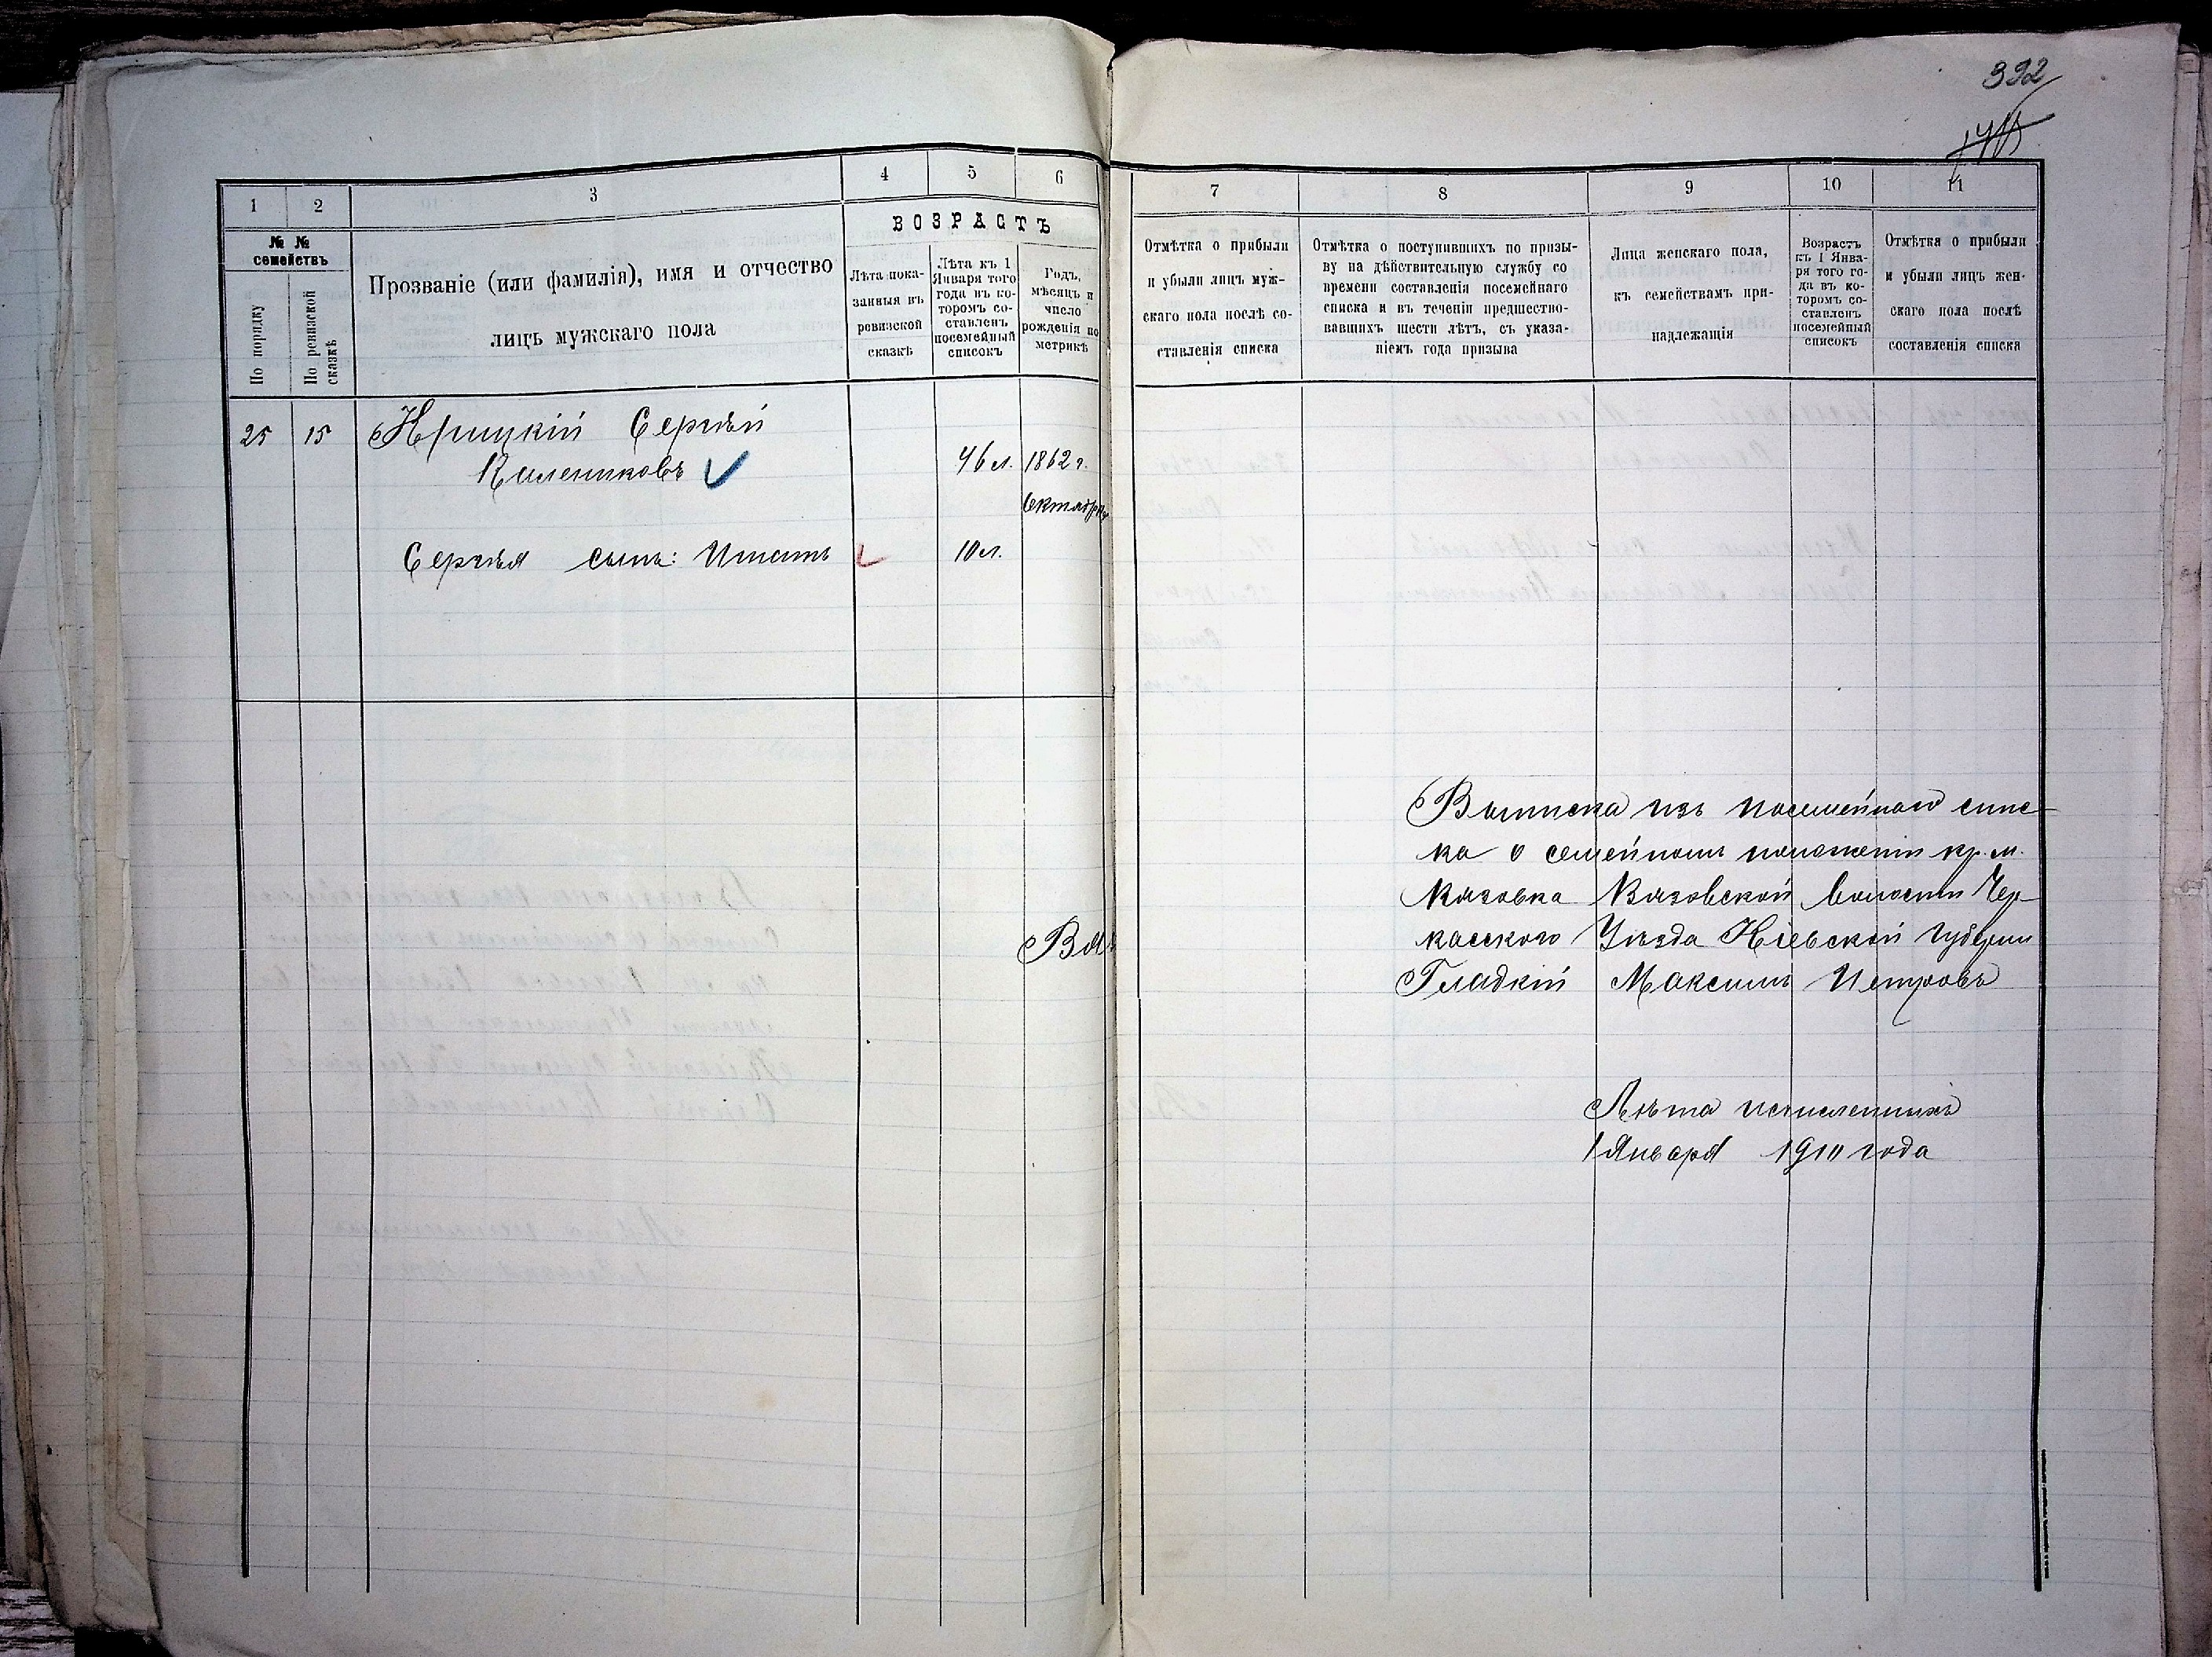 392
1 2 3 4 5 6 7 8 9 10 11
ВОЗРАСТЪ
№ №
семействъ
По порядку
По ревизской
сказкѣ
Прозваніе (или фамилія), имя и отчество
лицъ мужскаго пола
Лѣта пока-
занныя въ
ревизской
сказкѣ
Лѣта къ 1
Января того
года въ ко-
торомъ со-
ставленъ
посемейный
списокъ
Годъ,
мѣсяцъ и
число
рожденія по
метрикѣ
Отмѣтка о прибыли
и убыли лицъ муж-
скаго пола послѣ со-
ставленія списка
Отмѣтка о поступившихъ по призы-
ву на дѣйствительную службу со
времени составленія посемейнаго
списка и въ теченіи предшество-
вавшихъ шести лѣтъ, съ указа-
ніемъ года призыва
Лица женскаго пола,
къ семействамъ при-
надлежащія
Возрастъ
къ 1 Янва-
ря того го-
да въ ко-
торомъ со-
ставленъ
посемейный
списокъ
Отмѣтка о прибыли
и убыли лицъ жен-
скаго пола послѣ
составленія списка
25 15 Крицкій Сергѣй
46 л. 1862 г.
Октября
Сергѣя сынъ: Игнатъ 10 л.
Выписка изъ посемейнаго спис-
ка о семейномъ положеніи кр. м.
Вязовка Вязовской Волости Чер-
касскаго Уѣзда Кіевской Губерніи
Гладкій Максимъ Петровъ
Лѣта исчислены къ
1 Января 1910 года